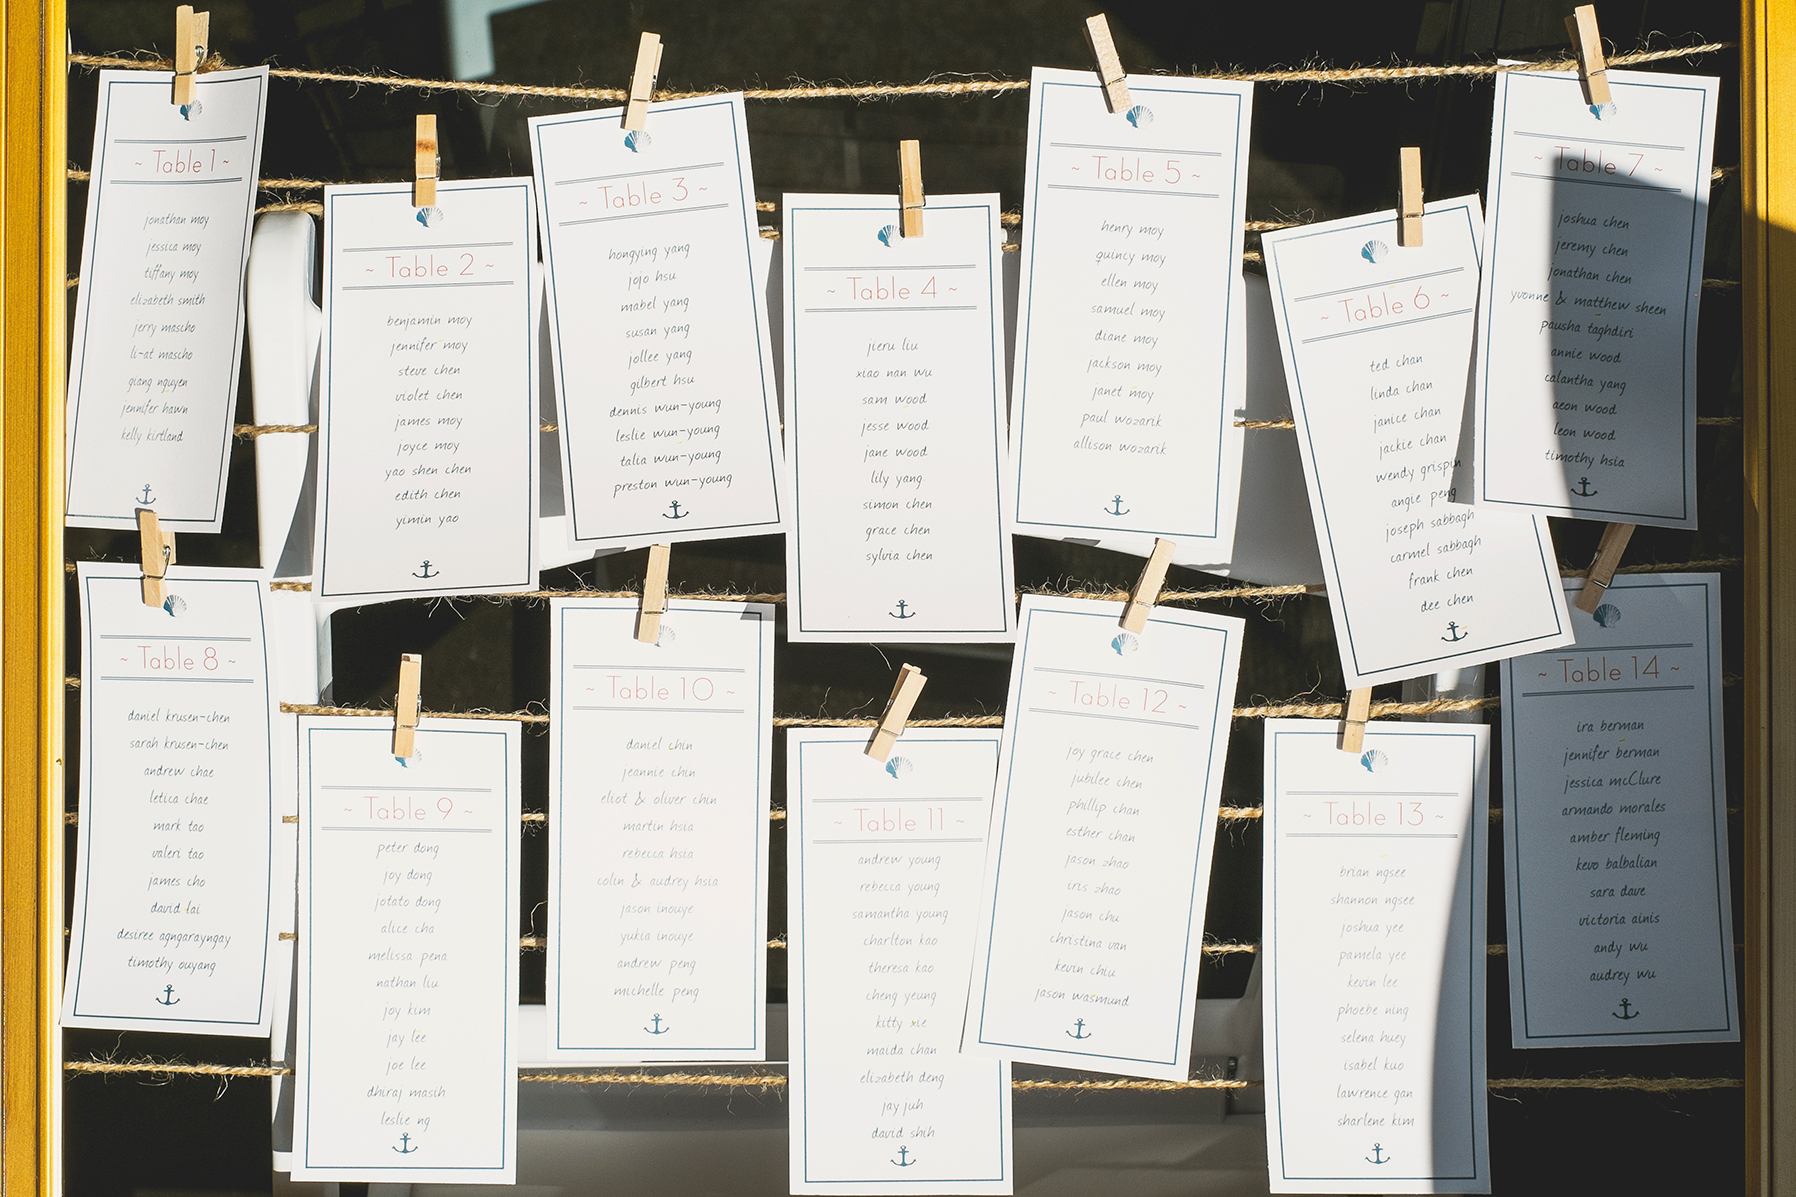 ~ Table 1 ~
jonathan moy
jessica moy
tiffany moy
elizabeth smith
jerry mascho
li-at mascho
giang nguyen
jennifer hawn
kelly kirtland
~ Table 2 ~
benjamin moy
jennifer moy
steve chen
violet chen
james moy
joyce moy
yao shen chen
edith chen
yimin yao
~ Table 3 ~
hongying yang
jojo hsu
mabel yang
susan yang
jollee yang
gilbert hsu
dennis wun-young
leslie wun-young
talia wun-young
preston wun-young
~ Table 4 ~
jieru liu
xiao nan wu
sam wood
jesse wood
jane wood
lily yang
simon chen
grace chen
sylvia chen
~ Table 5 ~
henry moy
quincy moy
ellen moy
samuel moy
diane moy
jackson moy
janet moy
paul wozarik
allison wozarik
~ Table 6 ~
ted chan
linda chan
janice chan
jackie chan
wendy grispin
angie peng
joseph sabbagh
carmel sabbagh
frank chen
dee chen
~ Table 7 ~
joshua chen
jeremy chen
jonathan chen
yvonne & matthew sheen
pausha taghdiri
annie wood
calantha yang
aeon wood
leon wood
timothy hsia
~ Table 8 ~
daniel krusen-chen
sarah krusen-chen
andrew chae
letica chae
mark tao
valeri tao
james cho
david lai
desiree agngarayngay
timothy ouyang
~ Table 9 ~
peter dong
joy dong
jotato dong
alice cha
melissa pena
nathan liu
joy kim
jay lee
joe lee
dhiraj masih
leslie ng
~ Table 10 ~
daniel chin
jeannie chin
eliot & oliver chin
martin hsia
rebecca hsia
colin & audrey hsia
jason inouye
yukia inouye
andrew peng
michelle peng
~ Table 11 ~
andrew young
rebecca young
samantha young
charlton kao
theresa kao
cheng yeung
kitty xie
maida chan
elizabeth deng
jay juh
david shih
~ Table 12 ~
joy grace chen
jubilee chen
phillip chan
esther chan
jason zhao
iris zhao
jason chu
christina van
kevin chiu
jason wasmund
~ Table 13 ~
brian ngsee
shannon ngsee
joshua yee
pamela yee
kevin lee
phoebe ning
selena huey
isabel kuo
lawrence gan
sharlene kim
~ Table 14 ~
ira berman
jennifer berman
jessica mcClure
armando morales
amber fleming
kevo balbalian
sara dave
victoria ainis
andy wu
audrey wu